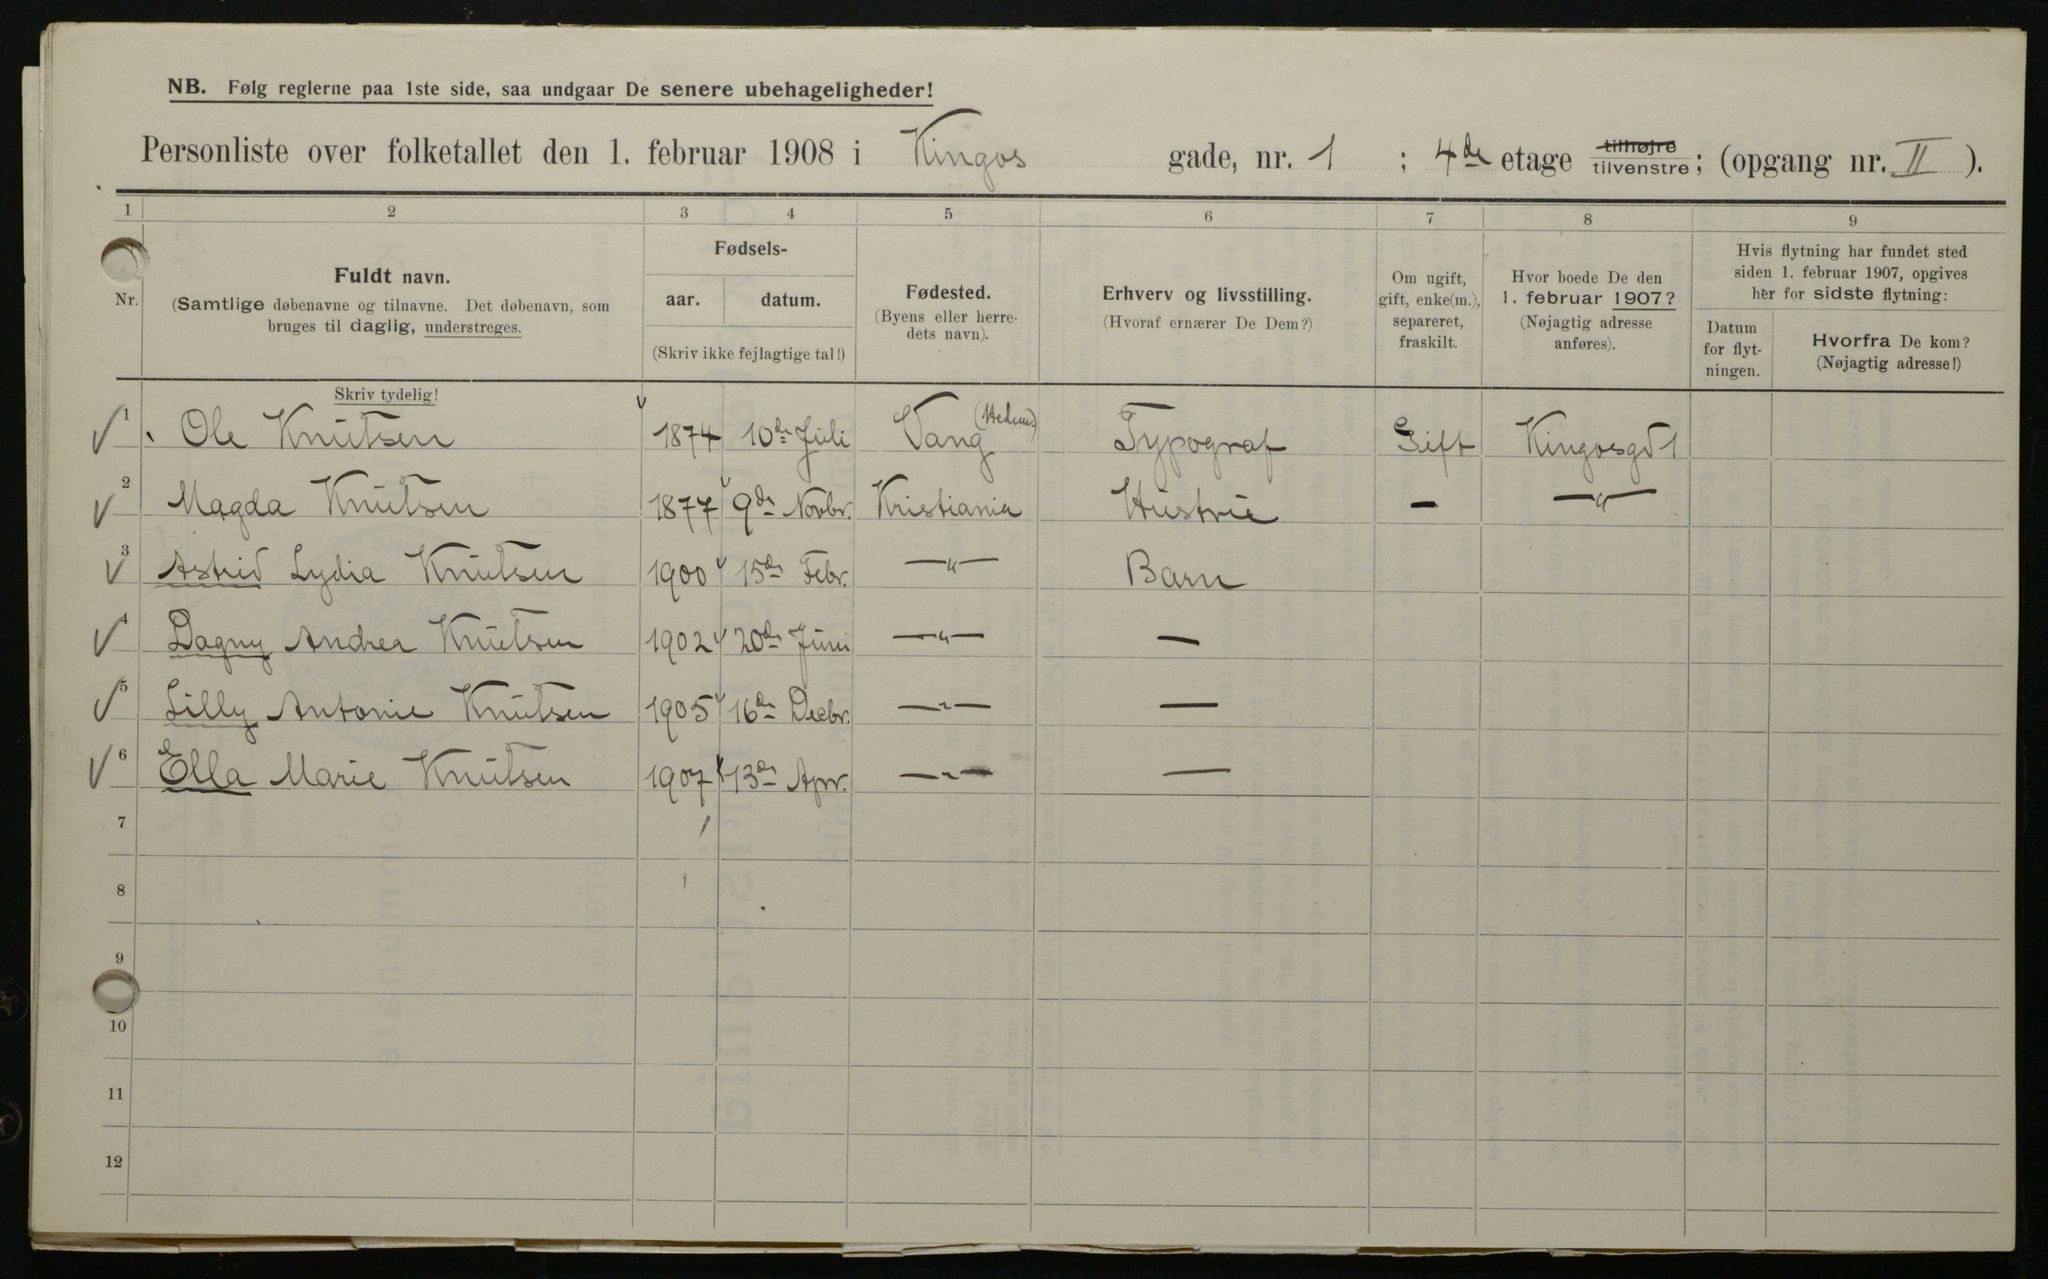 NB. Følg reglerne paa 1ste side, saa undgaar De senere ubehageligheder!
Personliste over folketallet den 1. februar 1908 i Kingos gade, nr. 1 ; 4de etage tilhøjre tilvenstre; (opgang nr. II ).
1 2 3 4 5 6 7 8 9
Nr.
Fuldt navn.
(Samtlige døbenavne og tilnavne. Det døbenavn, som
bruges til daglig, understreges.
Skriv tydelig!
Fødsels-
aar. datum.
(Skriv ikke fejlagtige tal!)
Fødested.
(Byens eller herre-
dets navn).
Erhverv og livsstilling.
(Hvoraf ernærer De Dem?)
Om ugift,
gift, enke(m.),
separeret,
fraskilt.
Hvor boede De den
1. februar 1907?
(Nøjagtig adresse
anføres).
Hvis flytning har fundet sted
siden 1. februar 1907, opgives
her for sidste flytning:
Datum
for flyt-
ningen.
Hvorfra De kom?
(Nøjagtig adresse!)
1 Ole Knutsen 1874 10de Juli Vang (Hedem) Typograf Gift Kingosgd 1
2 Magda Knutsen 1877 9de Novbr. Kristiania Hustru — —"—
3 Astrid Lydia Knutsen 1900 15de Febr. —"— Barn
4 Dagny Andrea Knutsen 1902 20de Juni —"— —
5 Lilly Antonie Knutsen 1905 16de Decbr. —"— —
6 Ella Marie Knutsen 1907 13de Apr. —"— —
7
8
9
10
11
12